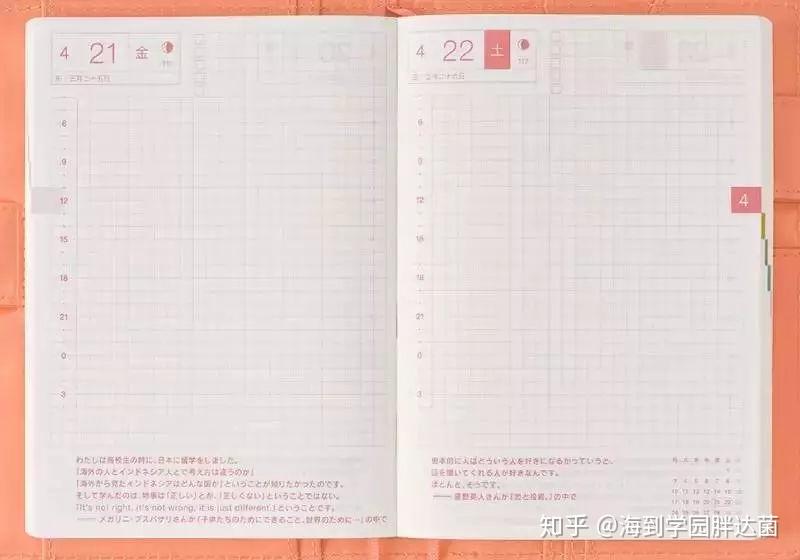 4 21 金
三月二十五日
6
9
12
15
18
21
0
3
わたしは高校生の時に、日本に留学をしました。
「海外の人とインドネシア人とで考え方は違うのか」
「海外から見たインドネシアはどんな国か」ということが知りたかったのです。
そして学んだのは、物事は「正しい」とか、「正しくない」ということではない。
「It's not right, it's not wrong, it is just different.」ということです。
—— メガリニ・プスパサリさんが『子供たちのためにできること、世界のために…』の中で
4 22 土
三月二十六日
6
9
12
15
18
21
0
3
4
基本的に人はどういう人を好きになるかっていうと、
話を聞いてくれる人が好きなんです。
ほとんど、そうです。
の中で
知乎 @海到学园胖达菌